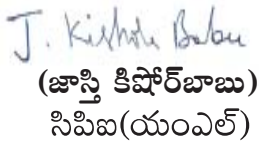 J. Kishore Babu
(జాస్తి కిషోర్‌బాబు)
సిపిఐ(యంఎల్)